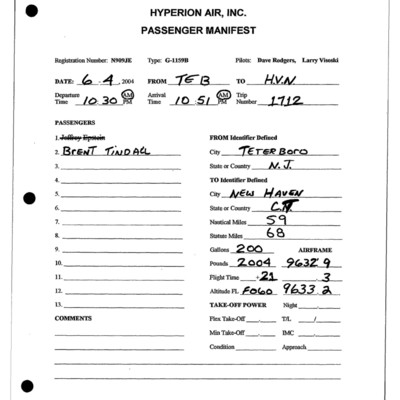 HYPERION AIR, INC.
PASSENGER MANIFEST
Registration Number: N909JE Type: G-1159B Pilots: Dave Rodgers, Larry Visoski
DATE: 6-4, 2004 FROM TEB TO H.V.N
Departure Time 10:30 AM PM Arrival Time 10:51 AM PM Trip Number 1712
PASSENGERS
1. Jeffrey Epstein FROM Identifier Defined
2. BRENT TINDALL City TETERBORO
3. State or Country N.J.
4. TO Identifier Defined
5. City NEW HAVEN
6. State or Country CT.
7. Nautical Miles 59
8. Statute Miles 68
9. Gallons 200 AIRFRAME
10. Pounds 2004 9632.9
11. Flight Time +21 .3
12. Altitude FL F060 9633.2
13. TAKE-OFF POWER Night
COMMENTS Flex Take-Off T/L /
Min Take-Off IMC
Condition Approach